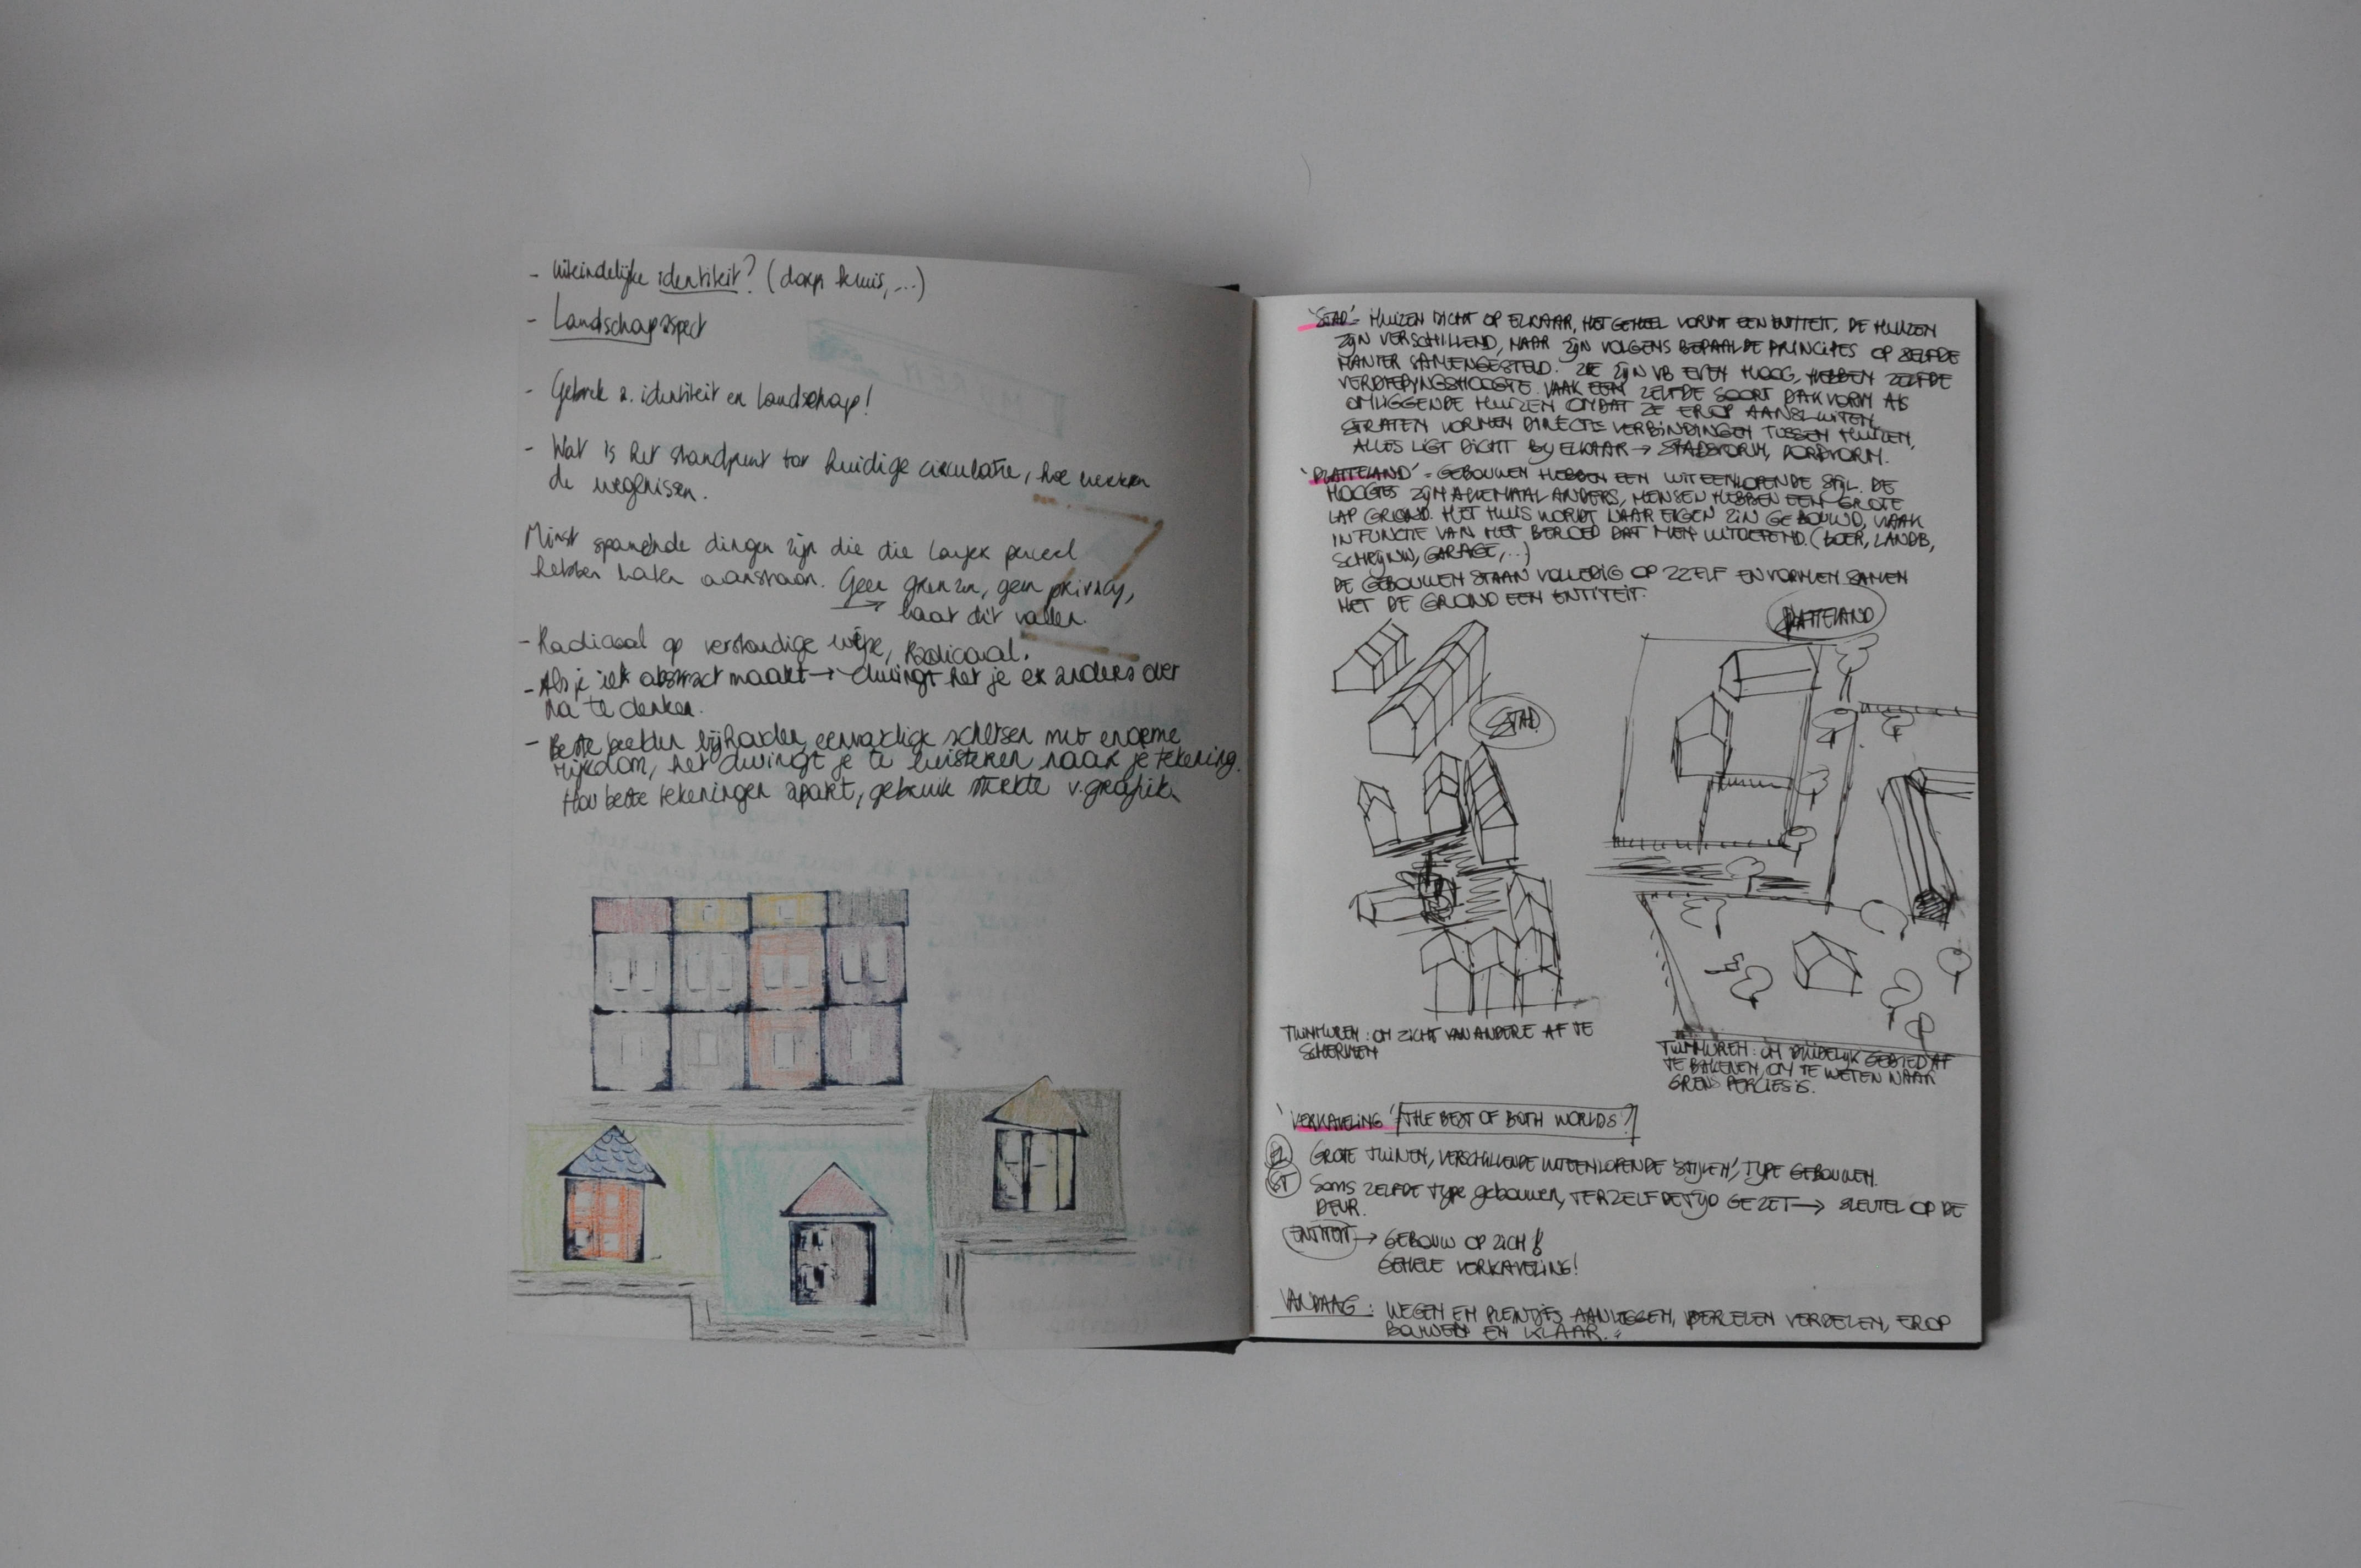 - Uiteindelijke identiteit? (dorp, kluis, ...)
- Landschapaspect
- Gebrek a. identiteit en landschap!
- Wat is het standpunt tov huidige circulatie, hoe werken
de wegenissen.
Minst spannende dingen zijn die die lager perceel
hebben laten aanstaan. Geen grenzen, geen privacy,
→ laat dit vallen.
- Radicaal op verstandige wijze, Radicaal.
- Als je iets abstract maakt → dwingt het je er anders over
na te denken.
- Beste beelden bijhouden, eenvoudige schetsen met enorme
rijkdom, het dwingt je te luisteren naar je tekening.
Hou beste tekeningen apart, gebruik sterkte v. grafiek
'STAD' - HUIZEN DICHT OP ELKAAR, HET GEHEEL VORMT EEN ENTITEIT. DE HUIZEN
ZIJN VERSCHILLEND, MAAR ZIJN VOLGENS BEPAALDE PRINCIPES OP ZELFDE
MANIER SAMENGESTELD. ZE ZIJN VB EVEN HOOG, HEBBEN ZELFDE
VERDIEPINGSHOOGTE. VAAK EEN ZELFDE SOORT DAKVORM ALS
OMLIGGENDE HUIZEN OMDAT ZE EROP AANSLUITEN.
STRATEN VORMEN DIRECTE VERBINDINGEN TUSSEN HUIZEN,
ALLES LIGT DICHT BIJ ELKAAR → STADSVORM, DORPVORM.
'PLATTELAND' - GEBOUWEN HEBBEN EEN UITEENLOPENDE STIJL. DE
HOOGTES ZIJN ALLEMAAL ANDERS, MENSEN HEBBEN EEN GROTE
LAP GROND. HET HUIS WORDT NAAR EIGEN ZIN GEBOUWD, VAAK
IN FUNCTIE VAN HET BEROEP DAT MEN UITOEFEND. (BOER, LANDB,
SCHRIJNW, GARAGE, ...)
DE GEBOUWEN STAAN VOLLEDIG OP ZZELF EN VORMEN SAMEN
MET DE GROND EEN ENTITEIT.
PLATTELAND
STAD
TUINMUREN: OM ZICHT VAN ANDERE AF TE
SCHERMEN
TUINMUREN: OM DUIDELIJK GEBIED AF
TE BAKENEN, OM TE WETEN WAAR
GRENS PERCEEL IS.
'VERKAVELING' / THE BEST OF BOTH WORLDS?
PL GROTE TUINEN, VERSCHILLENDE UITEENLOPENDE 'STIJLEN', TYPE GEBOUWEN.
ST Soms ZELFDE TYPE gebouwen, TERZELFDETIJD GEZET → SLEUTEL OP DE
DEUR.
ENTITEIT → GEBOUW OP ZICH &
GEHELE VERKAVELING!
VANDAAG: WEGEN EN PLEINTJES AANLEGGEN, PERCELEN VERDELEN, EROP
BOUWEN EN KLAAR.